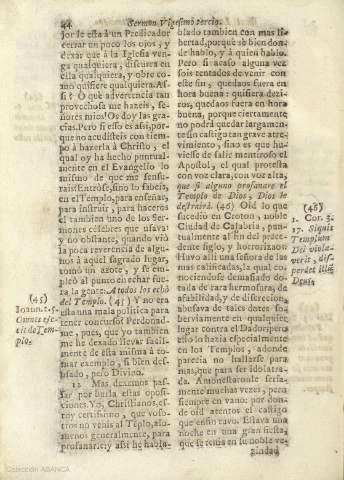 44 Sermon Vigesimo tercio.
jor le està à un Predicador
cerrar un poco los ojos, y
dexar que à la Iglesia ven-
ga qualquiera, discurra en
ella qualquiera, y obre co-
mo quisiere qualquiera. As-
si? O què advertencia tan
provechosa me haveis, se-
ñores mios! Os doy las gra-
cias. Pero si esso es assi, por-
que no acudisteis con tiem-
po à hazerla à Christo, el
qual oy ha hecho puntual-
mente en el Evangelio lo
mismo de que me censu-
rais? Entrose, si no lo sabeis,
en el Templo, para enseñar,
para instruir, para hazeros
el tambien uno de los Ser-
mones celebres que usava:
y no obstante, quando viò
la poca reverencia de algu-
nos à aquel sagrado lugar,
tomò un azote, y se em-
pleò al punto en echar fue-
ra la gente: A todos los echò
del Templo. (45) Y no era
esta una mala politica para
tener concursos? Perdonad-
me, pues, que yo tambien
me he dexado llevar facil-
mente de esta misma à to-
mar exemplo, si bien des-
usado, pero Divino.
12 Mas dexemos pas-
sar por burla estas oposi-
ciones. Yo, Christianos, es-
toy certissimo, que voso-
tros no venis al Tẽplo, alo-
menos generalmente, para
profanarle; y assi he habla-
(45)
Ioann. 2. 5.
Omnes eje-
cit de Tem-
plo.
blado tambien con mas li-
bertad, porque sè bien don-
de hablo, y à quien hablo.
Pero si acaso alguna vez
sois tentados de venir con
este fin, quedaos fuera en
hora buena: quisiera dezi-
ros, quedaos fuera en hora
buena, porque ciertamente
no podrà quedar largamen-
te sin castigo tan grave atre-
vimiento, sino es que hu-
viesse de salir mentiroso el
Apostol, el qual protesta
con voz clara, con voz alta,
que si alguno profanare el
Templo de Dios, Dios le
destruirà. (46) Oid lo que
sucediò en Croton, noble
Ciudad de Calabria, pun-
tualmente al fin del prece-
dente siglo, y horrorizaos.
Huvo alli una señora de las
mas calificadas, la qual co-
nociendose demasiado do-
tada de rara hermosura, de
afabilidad, y de discrecion,
abusava de tales dotes so-
berviamente en qualquier
lugar contra el Dador; pero
esso lo hazia especialmente
en los Templos, adonde
parecia no hallarse para
mas, que para ser idolatra-
da. Amonestaronle seria-
mente muchas vezes, pero
siempre en vano: por don-
de oid atentos el castigo
que enfin tuvo. Estava una
noche en una gran fiesta,
que se tenia en su noble ve-
zindad
(46)
1. Cor. 3.
17. Siquis
Templum
Dei viola-
verit, dis-
perdet illũ
Deus.
Colección ABANCA